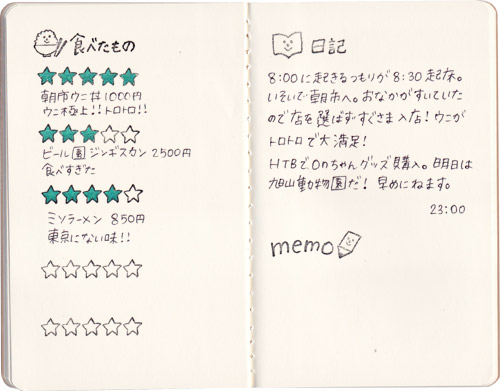 食べたもの
朝市ウニ丼1000円
ウニ極上!!トロトロ!!
ビール園ジンギスカン 2500円
食べすぎた
ミソラーメン 850円
東京にない味!!
日記
8:00に起きるつもりが8:30起床。
いそいで朝市へ。おなかがすいていた
ので店を選ばずすぐさま入店!ウニが
トロトロで大満足!
HTBでOnちゃんグッズ購入。明日は
旭山動物園だ! 早めにねます。
23:00
memo